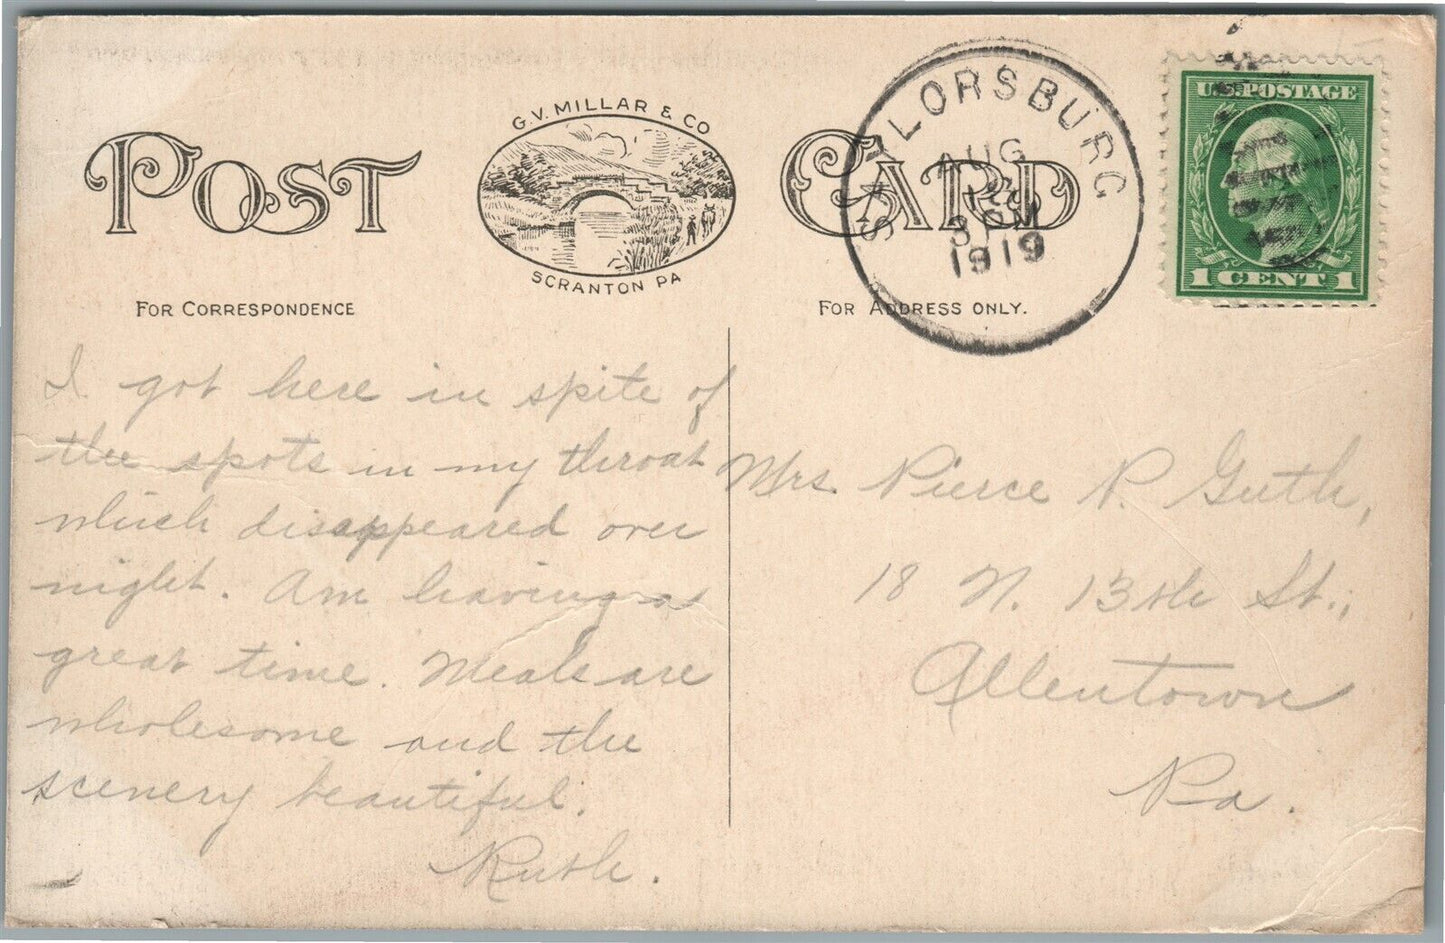 POST CARD
G.V. MILLAR & CO
SCRANTON PA
FOR CORRESPONDENCE
FOR ADDRESS ONLY.
SAYLORSBURG
AUG
3 PM
1919
U.S. POSTAGE
1 CENT 1
I got here in spite of
the spots in my throat
which disappeared over
night. Am having a
great time. Meals are
wholesome and the
scenery beautiful.
Ruth.
Mrs. Pierce P. Guth,
18 N. 13th St.,
Allentown
Pa.